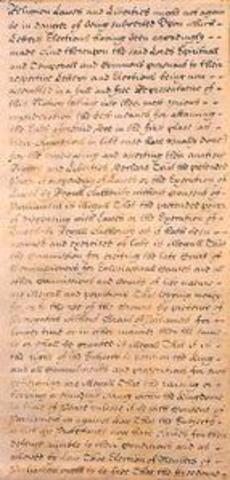 Religion Lawes and Liberties might not againe
in danger of being subverted Upon which
Letters Elections having beene accordingly
made And thereupon the said Lords Spirituall
and Temporall and Commons pursuant to their
respective Letters and Elections being now
assembled in a full and free Representative of
this Nation taking into their most serious
consideration the best meanes for attaining
the Ends aforesaid Doe in the first place (as
their Ancestors in like case have usually done)
for the vindicating and asserting their auntient
Rights and Liberties Declare That the pretended
Power of suspending of Laws or the Execution of
Laws by Regall Authority without Consent of
Parliament is illegall That the pretended power
of dispensing with Laws or the Execution of
Laws by Regall Authority as it hath been as-
sumed and exercised of late is illegall That
the Commission for erecting the late Court of
Commissioners for Ecclesiasticall Causes and all
other Commissions and Courts of like nature
are illegall and pernicious That levying money
for or to the use of the Crowne by pretence of
Prerogative without Grant of Parliament for
longer time or in other manner then the same
is or shall be granted is illegall That it is
the right of the Subjects to petition the King
and all Commitments and prosecutions for such
petitioning are illegall That the raising or
keeping a standing Army within the Kingdome
in time of Peace unless it be with consent of
Parliament is against Law That the Subjects
which are Protestants may have Armes for their
defence suitable to their Conditions and as
allowed by Law That Election of Members of
Parliament ought to be free That the freedome